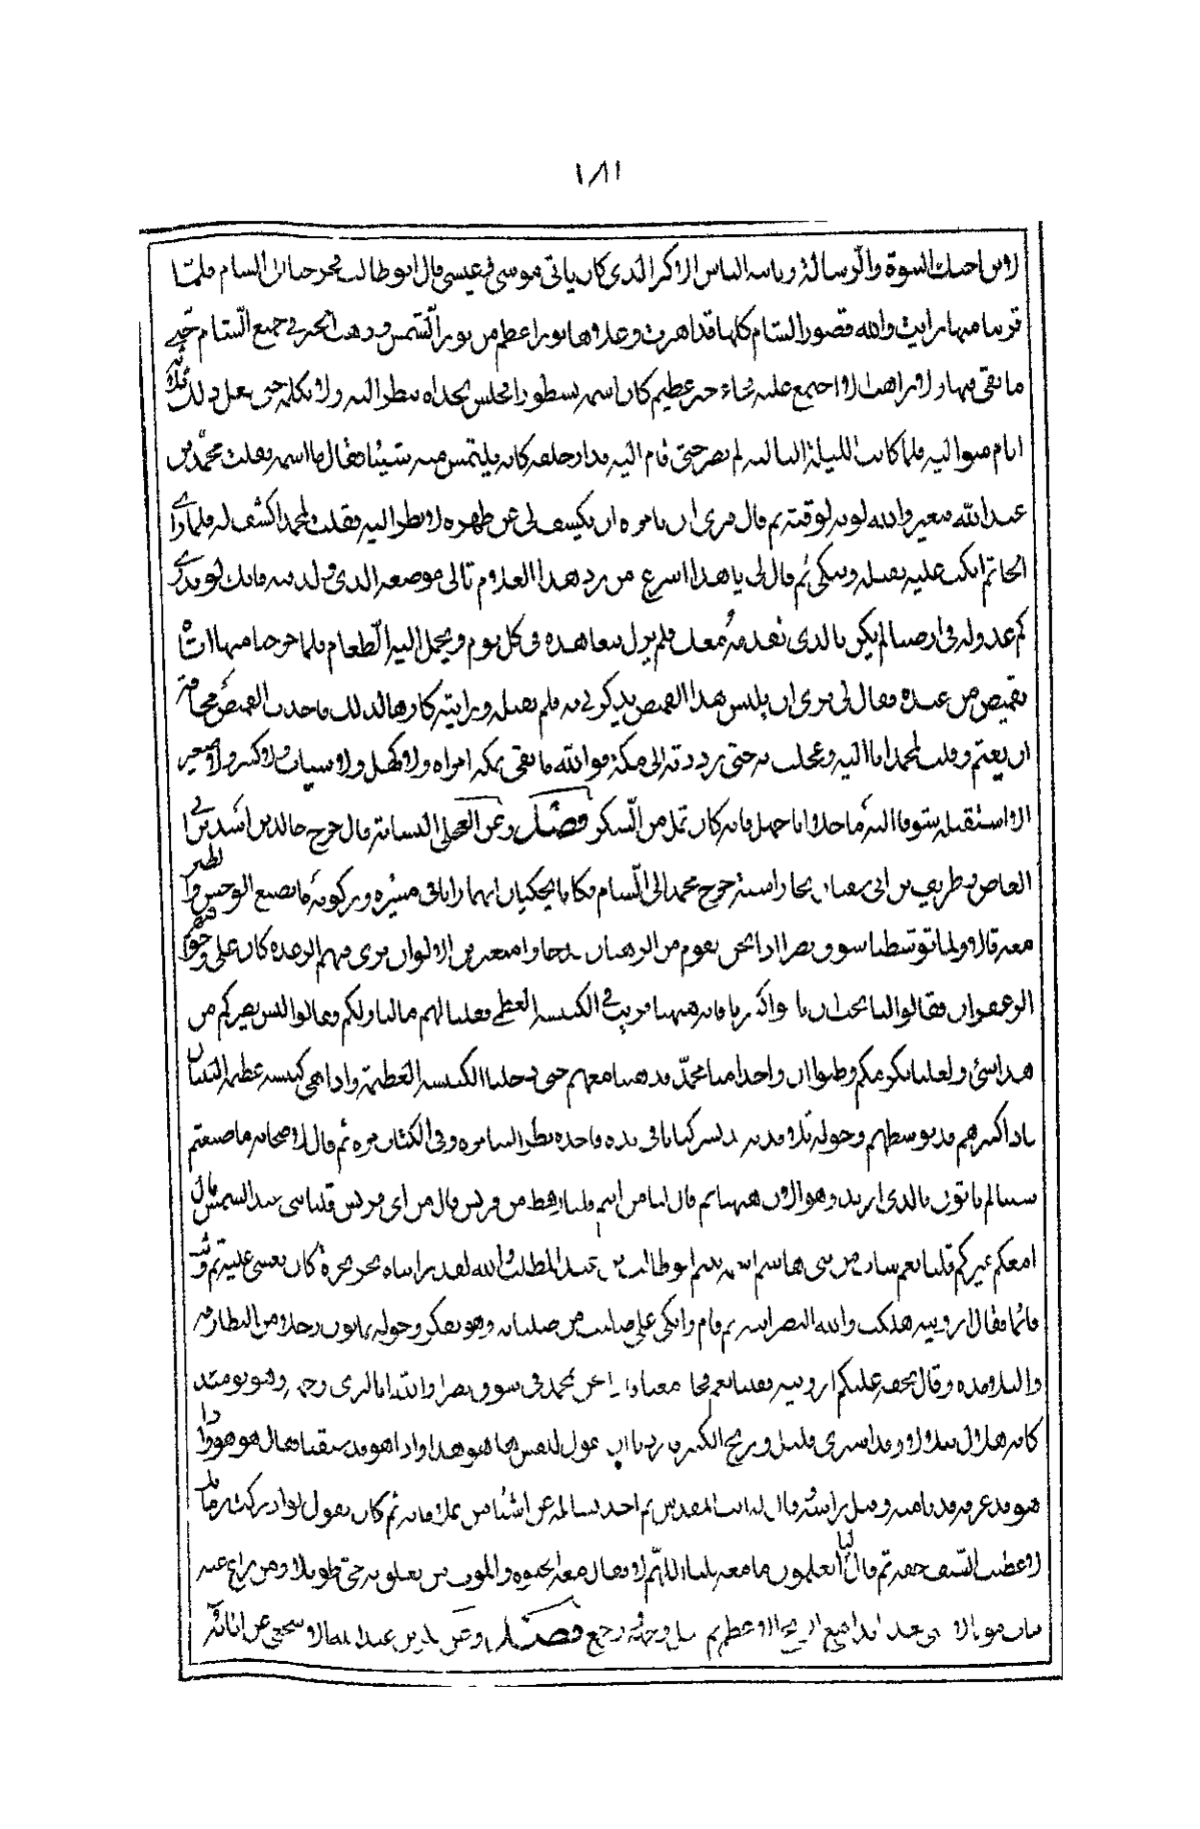 ١٨١
لابن اخيك النبوة والرسالة وياتيه الناموس الاكبر الذي كان ياتي موسى وعيسى قال ابو طالب فخرجنا الى الشام فلما
قربنا منها رايت والله قصور الشام كلها قد اهتزت وعلاها نور اعظم من نور الشمس وذهب الخبر في جميع الشام حتى
ما بقي فيها ولا راهب الا اجتمع عليه فجاء حبر عظيم كان اسمه نسطور فجلس بحذاه ينظر اليه ولا يكلمه حتى فعل ذلك ثلاثة
ايام متواليه فلما كانت الليلة الثالثه لم يصبر حتى قام اليه فدار خلفه كانه يلتمس منه شيئا فقال ما اسمه فقلت محمد بن
عبد الله فتغير والله لونه لوقته ثم قال فترى ان تامره ان يكشف لي عن ظهره لانظر اليه فقلت لمحمد اكشف له فلما راى
الخاتم انكب عليه يقبله ويبكي ثم قال لي يا هذا اسرع من رد هذا الغلام الى موضعه الذي ولد فيه فانك لو تدري
كم عدو له في ارضنا لم يكن بالذي تقدمه معك فلم يزل يتعاهده في كل يوم ويحمل اليه الطعام فلما خرجنا منها اتاه
بقميص من عنده فقال لي ترى ان يلبس هذا القميص يذكرني به فلم يقبله ورايته كارها لذلك فاخذت القميص مخافة
ان يغتم وقلت لمحمد انا البسه وعجلت به حتى رددته الى مكة فوالله ما بقي بمكه امراه ولا كهل ولا شباب ولا كبير ولا صغير
الا استقبله شوقا اليه ما خلا ابا جهل فانه كان ثمل من السكر فصل وعن العجلي النسابه قال خرج خالد بن اسد بن ابي
العاص وطريف بن ابي سفيان تجارا سنة خرج محمد الى الشام فكانا يحكيان انهما رايا في مسيره وركوبه ما يصنع الوحش والطير
معه قالا ولما توسطنا سوق بصرا اذا نحن بقوم من الرهبان قد جاوا متغيرين الالوان ترى فيهم الرعده كان على وجوههم
الزعفران فقالوا لنا نحب ان تاتوا اكبرنا فانه ههنا قريب في الكنيسه العظمى فقلنا لهم ما لنا ولكم وقالوا ليس يضركم من
هذا شي ولعلنا نكرمكم وظنوا ان واحدا منا محمد فذهبنا معهم حتى دخلنا الكنيسه العظيمة واذا هي كنيسه عظيمه البنيان
فاذا اكبرهم قد توسطهم وحوله تلامذته قد نشر كتابا في يده فاخذ ينظر الينا مره وفي الكتاب مره ثم قال لاصحابه ما صنعتم
شيئا لم تاتوني بالذي اريد وهو الان ههنا ثم قال لنا من انتم قلنا رهط من قريش قال من اي قريش قلنا من بني عبد الشمس قال
امعكم غيركم قلنا نعم شاب من بني هاشم اسمه يتيم ابو طالب بن عبد المطلب فوالله لقد نخر نخرة كان يغشى عليه ثم وثب
قائما فقال اروبيه هلكت والله النصرانيه ثم قام واتكى على صليب من صلبانه وهو يفكر وحوله ثمانون رجلا من البطارقه
والتلامذه وقال يخف عليكم ارونيه فقلنا نعم فجا معنا واذا نحن بمحمد في سوق بصرا والله لكانا لم نرى وجهه وهو يومئذ
كانه هلال يتلالا وقد اشترى قليل وربح الكثير فاردنا ان نقول للقس ها هو هذا واذا هو قد سبقنا فقال هو هو
هو قد عرفه فدنا منه وقبل راسه وقال له انت المقدس ثم اخذ يساله عن اشياء من علاماته ثم كان يقول لو ادركت زمانك
لاعطيت السيف حقه ثم قال لنا اتعلمون ما معه قلنا اللهم لا فقال معه الحيوه والموت من تعلق به حيي طويلا ومن زاغ عنه
مات موتا لا يحيى بعده ابدا هو الذي معه الربح الاعظم ثم قبل وجهه ورجع فصل وعن بكر بن عبد الله الاشجعي عن ابائه